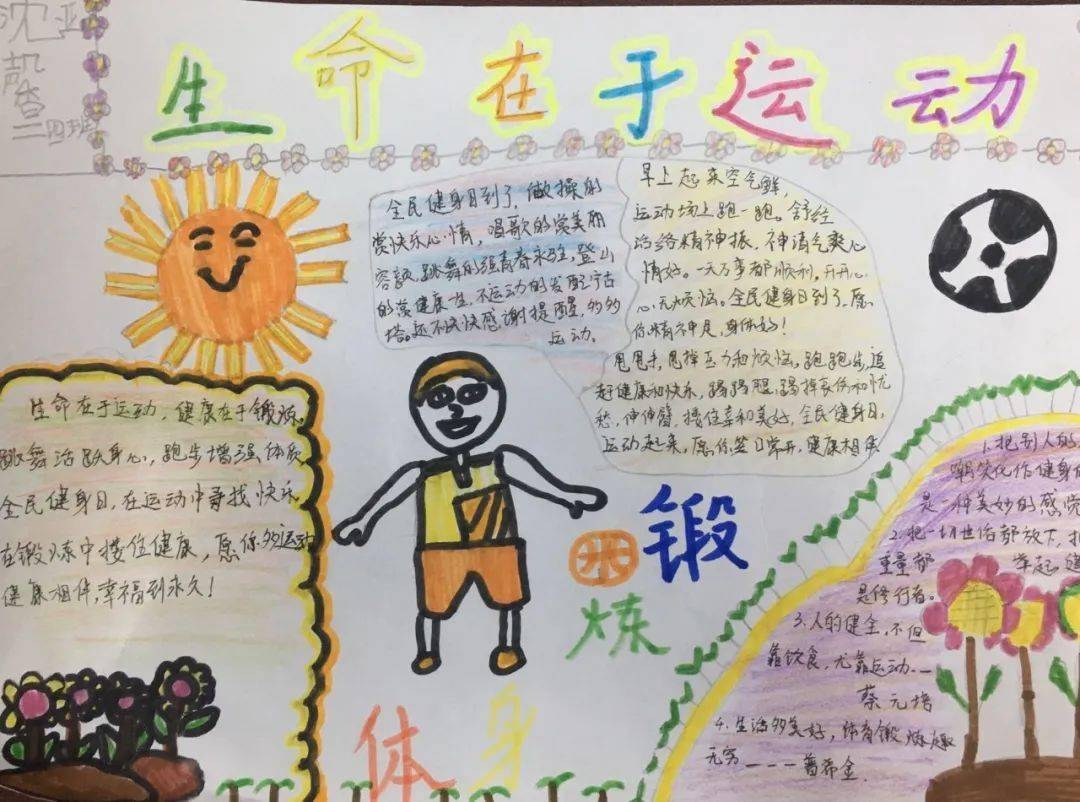 沈亚
馨
三四班
生命在于运动
全民健身日到了，做操的
赏快乐心情，唱歌的赏美丽
容颜，跳舞的强青春永驻，登山
的赏健康一生，不运动的发配宁古
塔。还不快快感谢提醒，多多
运动。
早上起来空气鲜，
运动场上跑一跑。舒经
活络精神振，神清气爽心
情好。一天万事都顺利，开开心
心无烦恼。全民健身日到了，愿
你精神足，身体好！
甩甩手，甩掉压力和烦恼，跑跑步，追
赶健康和快乐，踢踢腿，踢掉哀伤和忧
愁，伸伸臂，搂住幸和美好，全民健身日，
运动起来，愿你笑口常开，健康相伴
生命在于运动，健康在于锻炼。
跳舞活跃身心，跑步增强体质
全民健身日，在运动中寻找快乐
在锻炼中搂住健康，愿你多运动
健康相伴，幸福到永久！
锻
炼
身
体
1.把别人的
嘲笑化作健身
是一种美妙的感觉
2.把一切世俗都放下，
重量都
举起
是修行者。
3.人的健全，不但
靠饮食，尤靠运动——
蔡元培
4.生活多美好，体育锻炼趣
无穷———普希金